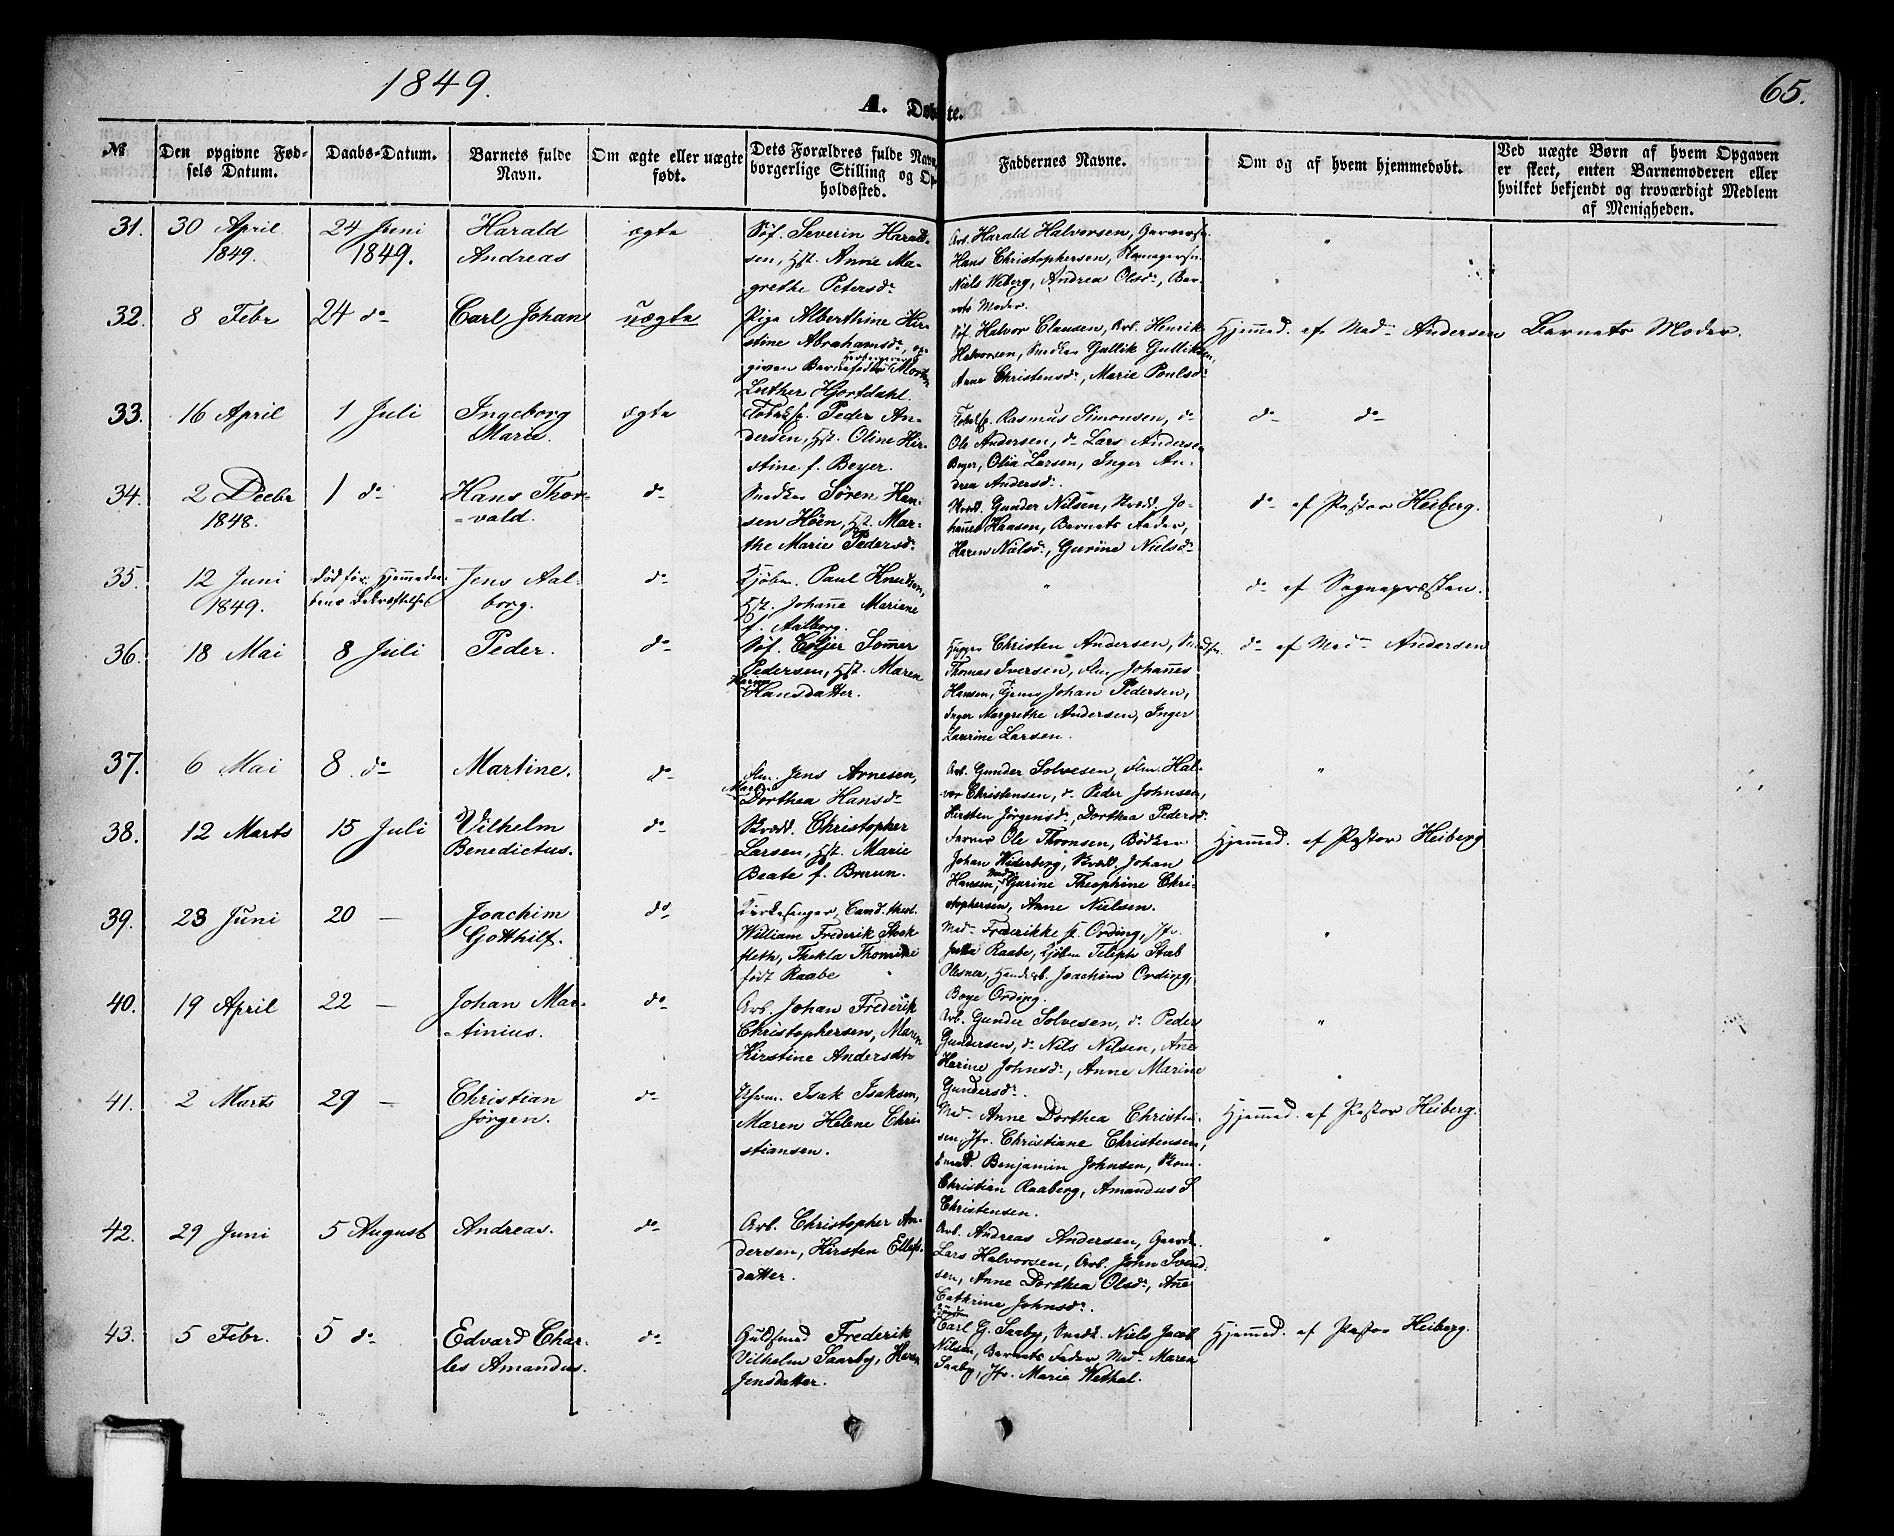 1849.
65.
A. Døbte.
№
Den opgivne Fød-
sels Datum.
Daabs-Datum.
Barnets fulde
Navn.
Om ægte eller uægte
født.
Dets Forældres fulde Navn,
borgerlige Stilling og Op-
holdssted.
Faddernes Navne.
Om og af hvem hjemmedøbt.
Ved uægte Børn af hvem Opgaven
er skeet, enten Barnemoderen eller
hvilket bekjendt og troværdigt Medlem
af Menigheden.
31.
30 April
1849.
24 Juni
1849.
Harald
Andreas
ægte
Söf. Severin Harald-
sen, Hst. Anne Ma-
grethe Petersdr
Arb. Harald Halvorsen,
Hans Christophersen,
Niels Weberg, Andrea Olsdr, Bar-
nets Moder.
"
32.
8 Febr
24 do
Carl Johan
uægte
Pige Alberthine Kir-
stine Abrahamsdr, op-
given Barnefader Morten
Luther Hjortdahl.
Söf. Halvor Clausen, Arb. Henrik
Halvorsen, Smedkr Gullik Gulliksen,
Anne Christensdr, Marie Poulsdr
Hjemmed. af Mad. Andersen
Barnets Moder.
33.
16 April
1 Juli
Ingeborg
Marie.
ægte
Tobaksp. Peder An-
dersen, Hst. Oline Kir-
stine f. Beyer.
Tobaksp. Rasmus Simonsen, do
Ole Andersen, do Lars Andersen
Beyer, Olia Larsen, Inger An-
drea Andersdr.
do do
34.
2 Decbr
1848.
1 do
Hans Thor-
vald.
do
Snedker Sören Han-
sen Höen, Hst. Mar-
the Marie Pedersdr
Skrædd. Gunder Nilsen, Skrædd. Jo-
hannes Hansen, Barnets Fader,
Karen Nilsdr, Gurine Nielsdr
do af Pastor Heiberg.
35.
12 Juni
1849.
död för Hjemmedaa-
bens Bekræftelse
Jens Aal-
borg.
do
Kjöbm. Paul Knudsen,
Hst. Johanne Mariane
f. Aalborg.
"
do af Sognepræsten.
36.
18 Mai
8 Juli
Peder.
do
Söf. Ejler Sommer
Pedersen, Hst. Maren
Karine
Hansdatter.
Christen Andersen,
Thomas Iversen, Flm. Johannes
Hansen, Johan Pedersen,
Inger Margrethe Andersen, Inger
Laurine Larsen.
do af Mad. Andersen
37.
6 Mai
8 do
Martine.
do
Flm. Jens Arnesen,
Maren
Dorthea Hansdr
Arb. Gunder Solvesen, Flm. Hal-
vor Christensen, do Peder Johnsen,
Kirsten Jörgensdr, Dorthea Pedersdr
"
38.
12 Marts
15 Juli
Vilhelm
Benedictus.
do
Skrædd. Christopher
Larsen, Hst. Marie
Beate f. Bruun.
Farver Ole Thomsen, Bödker
Johan Widerberg, Skrædd. Johan
Hansen, Mad. Gurine Theophine Chri-
stophersen, Anne Nielsen.
Hjemmed. af Pastor Heiberg
39.
23 Juni
20 —
Joachim
Gotthilf.
do
Kirkesanger, Cand. theol.
William Frederik Stock-
fleth, Thekla Thomine
födt Raabe
Mad. Frederikke f. Ording, Jfr.
Jutta Raabe, Kjöbm. Teleph Stub
Plesner, Handelsb. Joachim Ording,
Boye Ording.
"
40.
19 April
22 —
Johan Mar-
tinius.
do
Arb. Johan Frederik
Christophersen, Maren
Kirstine Andersdtr
Arb. Gunder Solvesen, do Peder
Gundersen, do Nils Nilsen, Ane
Karine Johnsdr, Anne Marine
Gundersdr.
"
41.
2 Marts
29 —
Christian
Jörgen.
do
Isak Isaksen,
Maren Helene Chri-
stiansen.
Mad. Anne Dorthea Christen-
sen, Jfr. Christiane Christensen,
Benjamin Johnsen,
Christian Raaberg, Amandus S
Christensen.
Hjemmed. af Pastor Heiberg.
42.
29 Juni
5 August
Andreas.
do
Arb. Christopher An-
dersen, Kirsten Ellefs-
datter.
Arb. Andreas Andersen, Gaardb.
Lars Halvorsen, Arb. John Svend-
sen, Anne Dorthea Olsdr, Ane
Cathrine Johnsdr.
"
43.
5 Febr.
5 do
Edvard Char-
les Amandus.
do
Guldsmed Frederik
Vilhelm Saaby, Karen
Jensdatter.
Carl G. Saaby, Snedk. Niels Jacob
Nilsen, Barnets Fader Mad. Maren
Saaby, Jfr. Marie Wethal.
Hjemmed. af Pastor Heiberg.